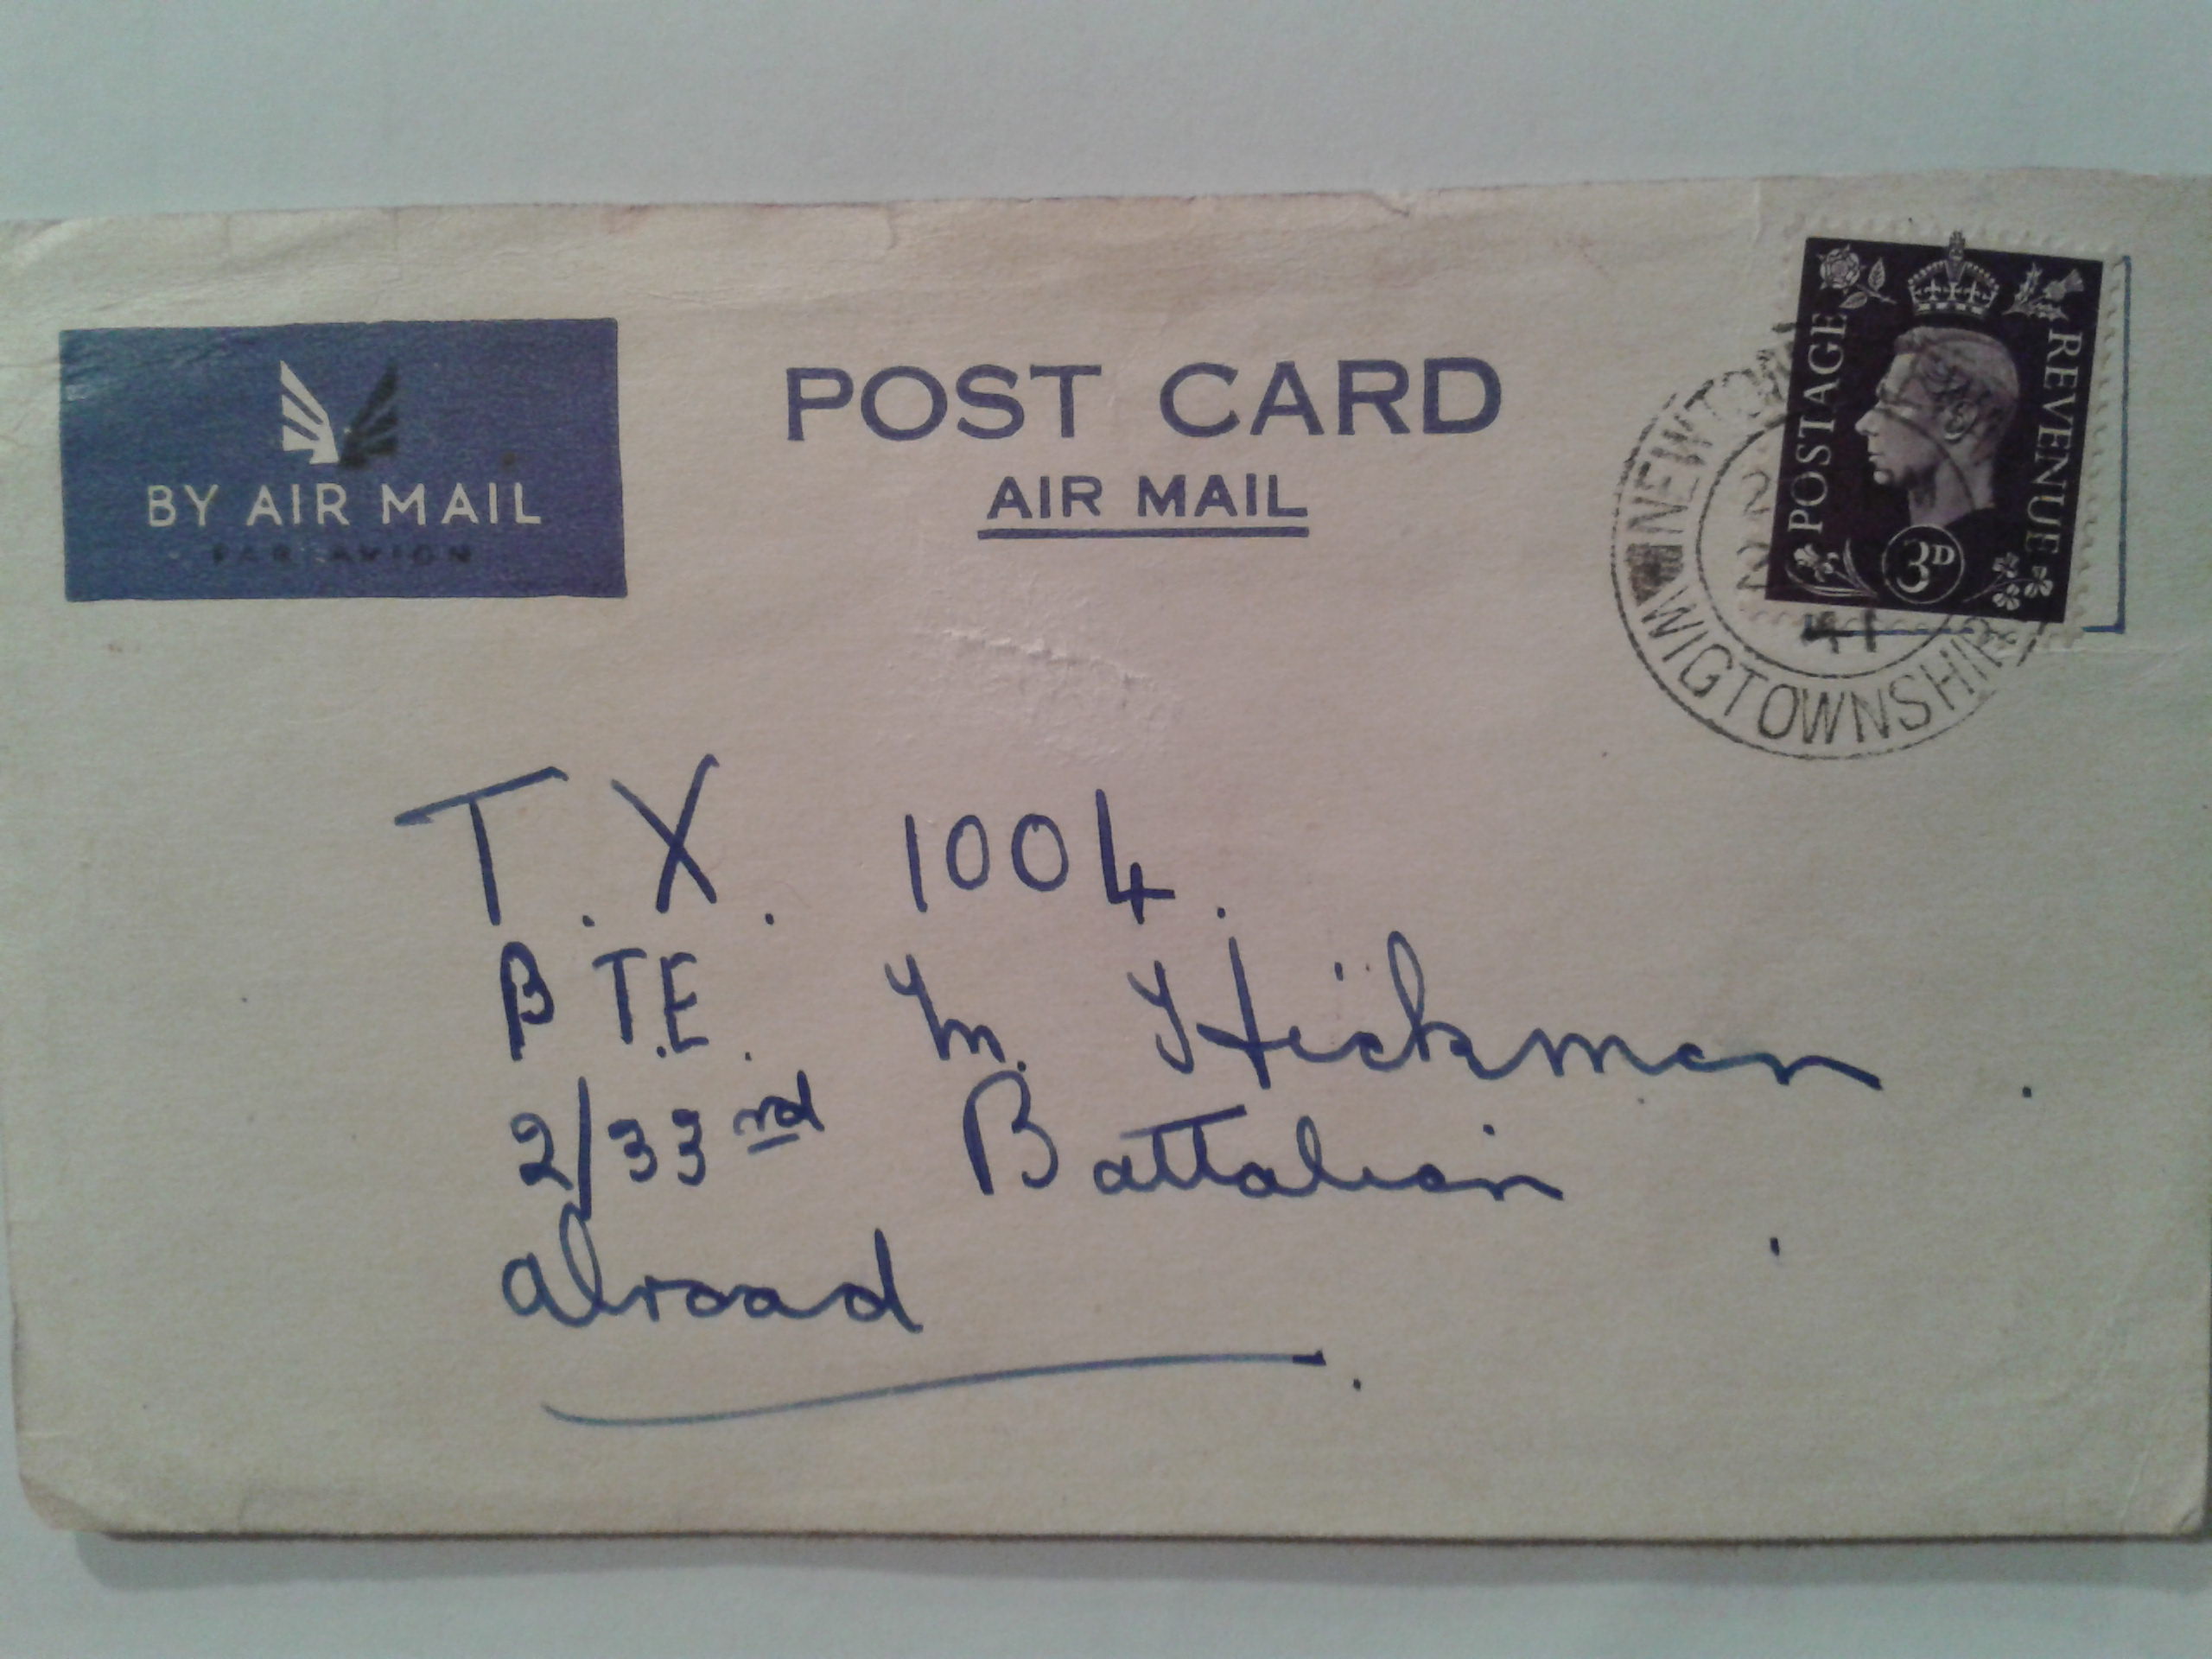 BY AIR MAIL
PAR AVION
POST CARD
AIR MAIL
POSTAGE
REVENUE
3D
NEWTOW
2
41
WIGTOWNSHIRE
T.X. 1004.
P T.E. M. Hickman.
2/33rd Battalion
abroad.